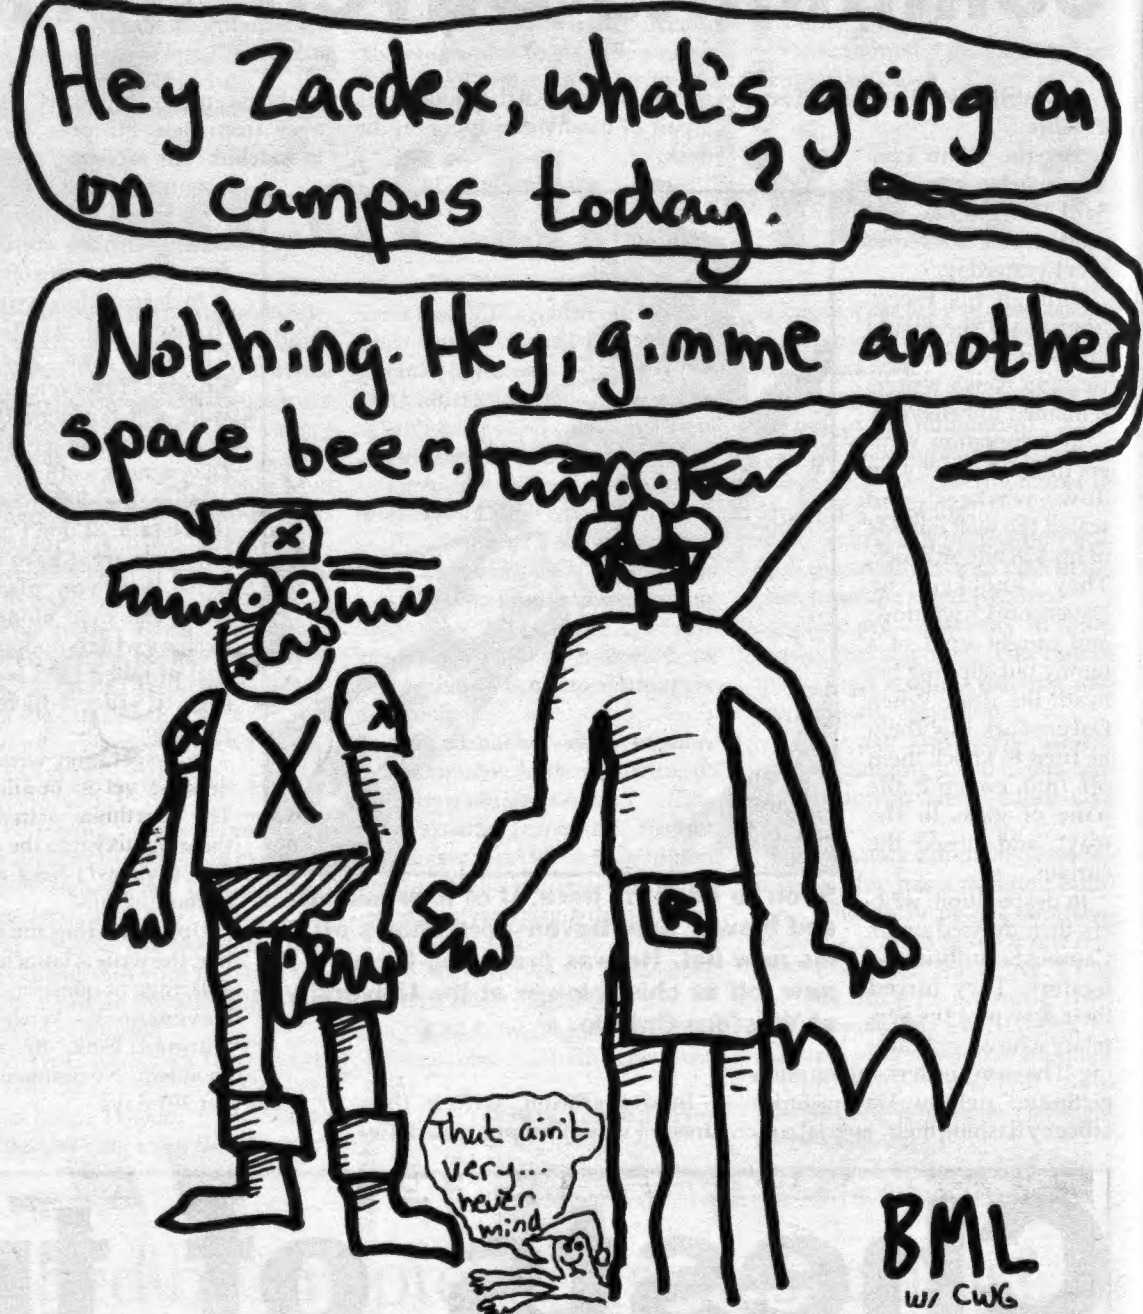 Hey Zardex, what's going on
on campus today?
Nothing. Hey, gimme another
space beer.
X
X
X
X
R
That ain't
very...
never
mind
BML
w/ CWG